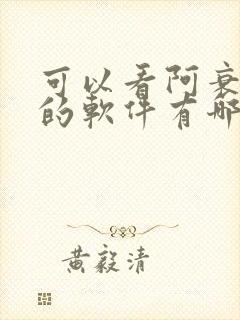 可以看阿衰
的軟件有哪
黄毅清